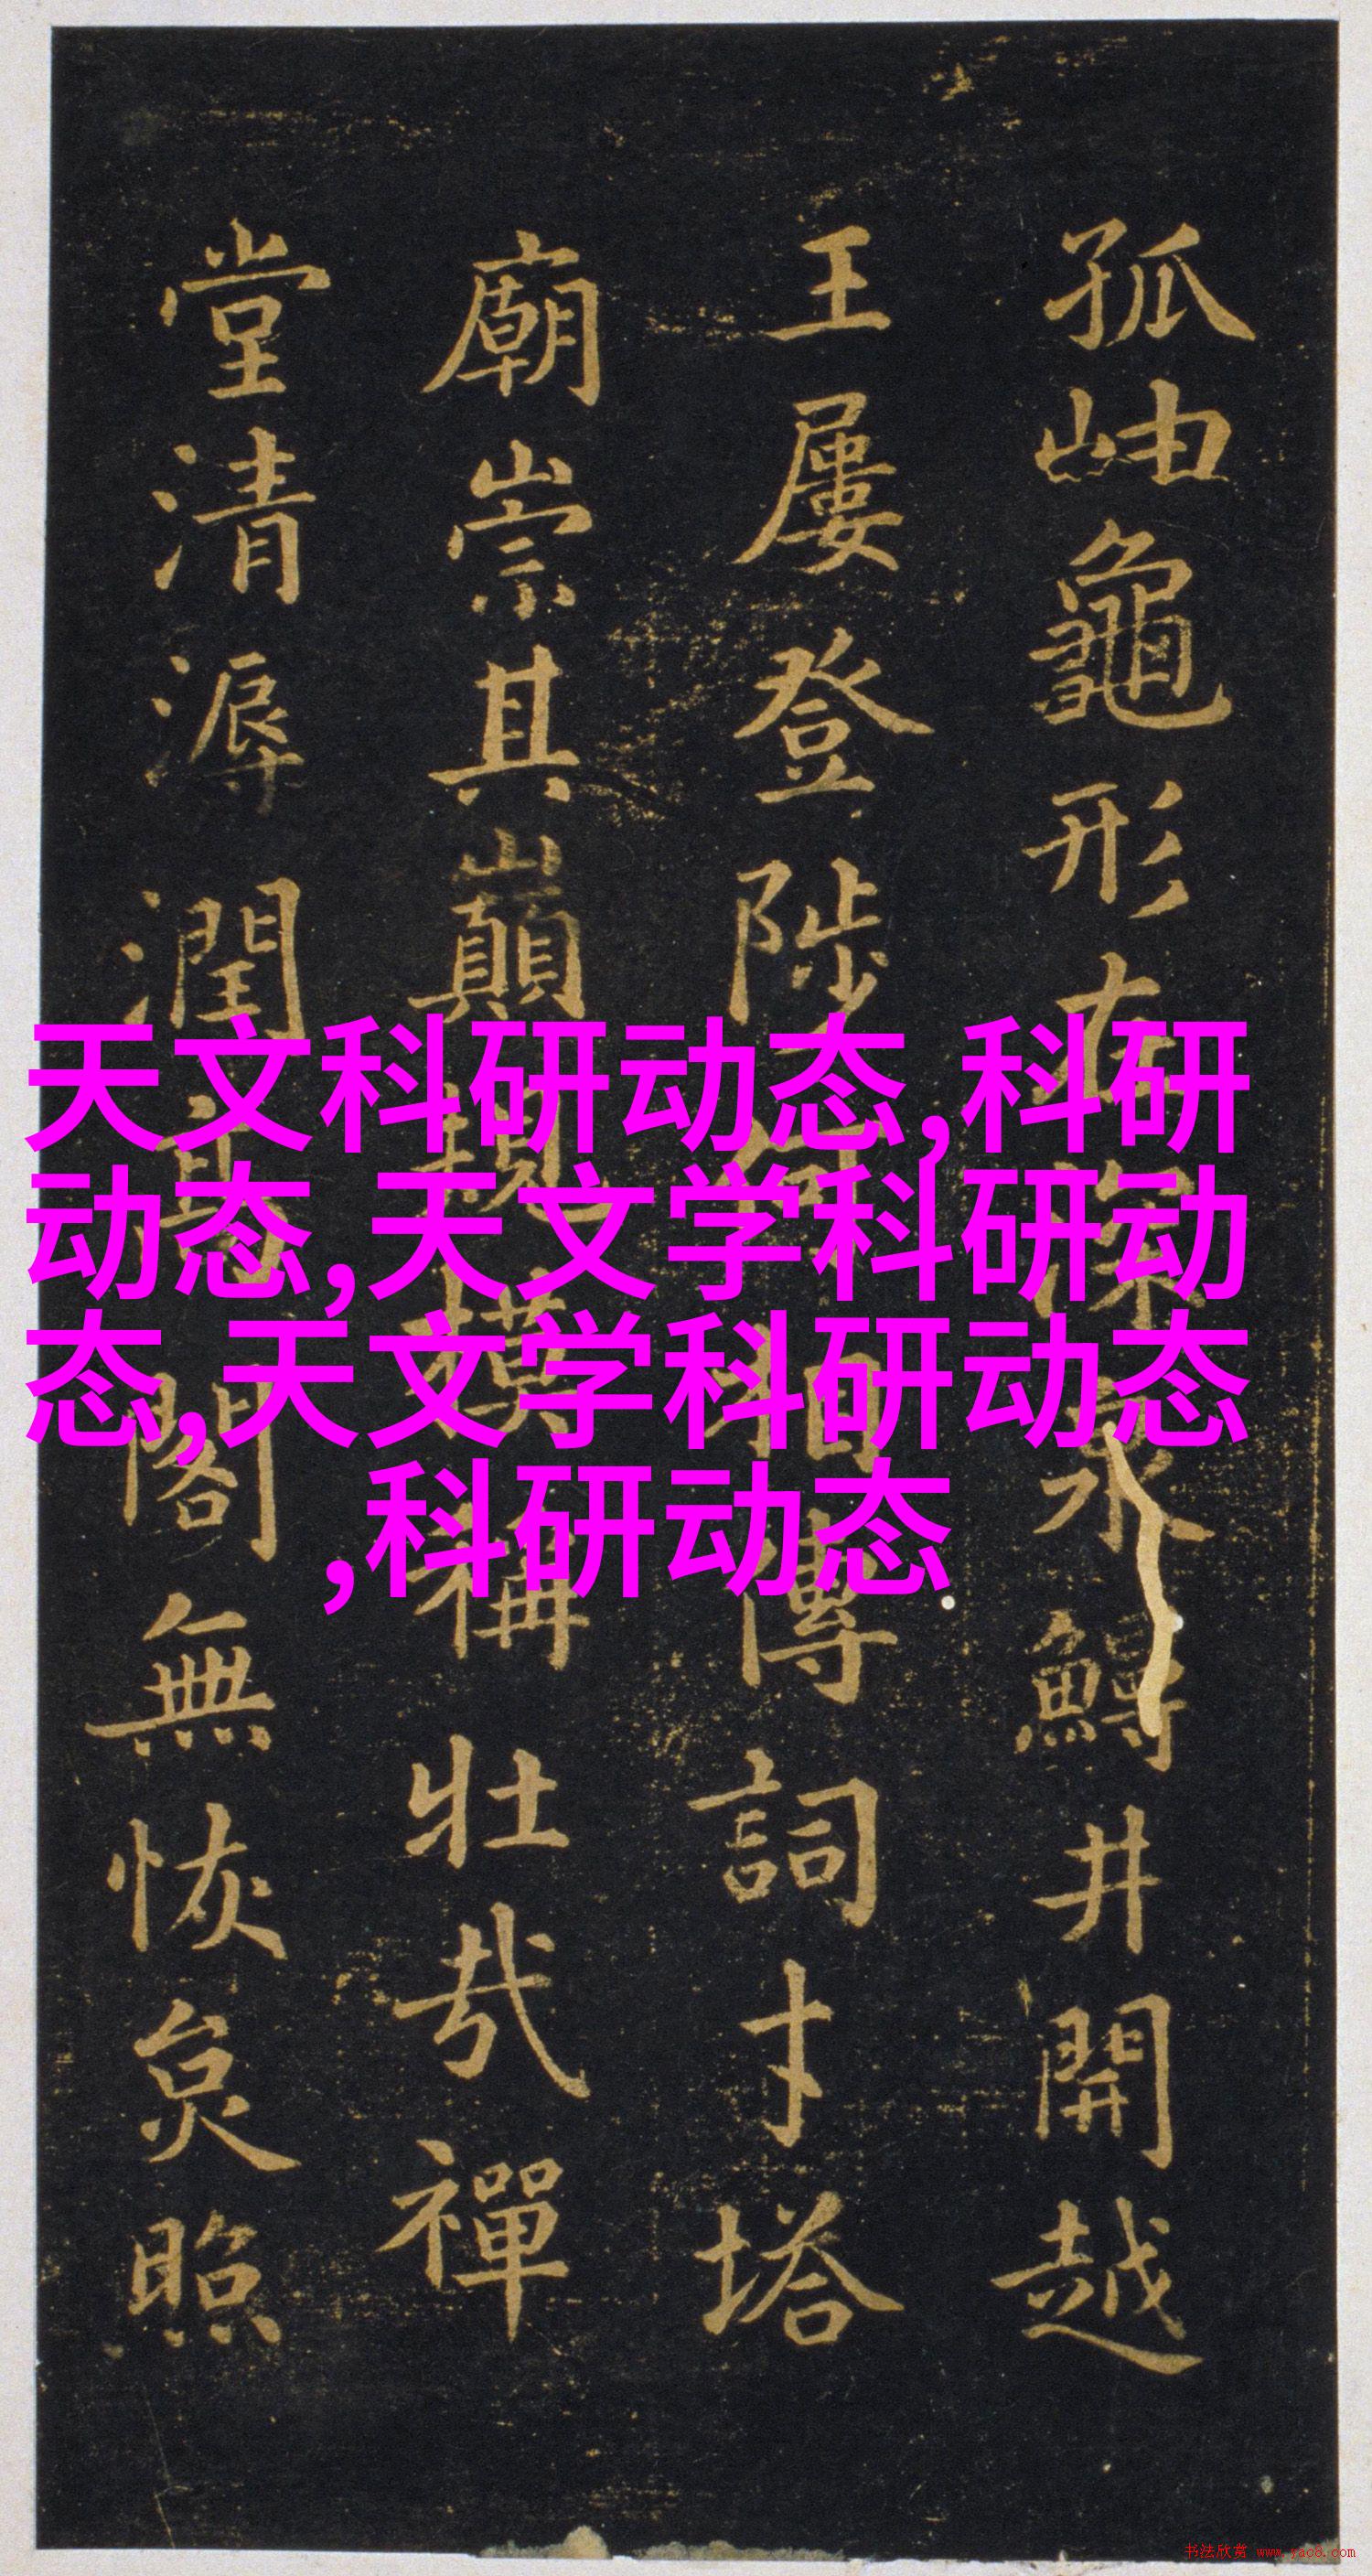 孤岫龜形在深泉井開越
王屢登陟何相傳詞才塔
廟崇其巔規模稱壯哉禪
堂清溽潤高閣無恢炱照
天文科研动态,科研
动态,天文学科研动
态,天文学科研动态
,科研动态
书法欣赏 www.yac8.com